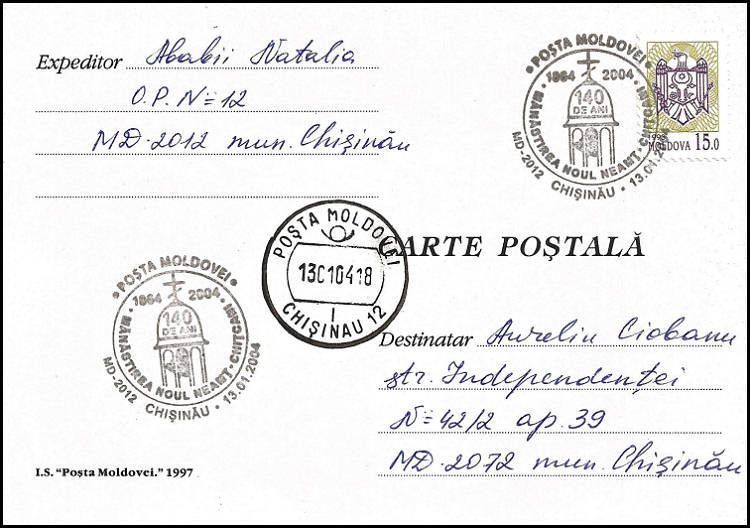 Expeditor Ababii Natalia
O.P. Nº12
MD-2012 mun. Chişinău
POŞTA MOLDOVEI
1864 2004
140
DE ANI
MĂNĂSTIREA NOUL NEAMŢ-CHIŢCANI
MD-2012 CHIŞINĂU · 13.01.2004
MOLDOVA 15.0
POŞTA MOLDOVEI
13010418
CHIŞINAU 12
1
CARTE POŞTALĂ
POŞTA MOLDOVEI
1864 2004
140
DE ANI
MĂNĂSTIREA NOUL NEAMŢ-CHIŢCANI
MD-2012 CHIŞINĂU · 13.01.2004
Destinatar Aureliu Ciobanu
str. Independenţei
Nº42/2 ap. 39
MD-2072 mun. Chişinău
I.S. "Poşta Moldovei." 1997